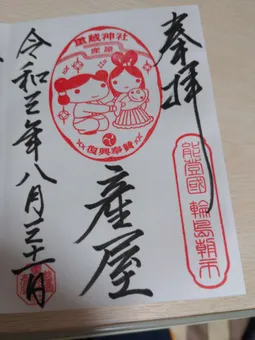 奉拝
能登國 輪島朝市
重蔵神社
産屋
復興奉賛
産屋
令和三年八月三十一日